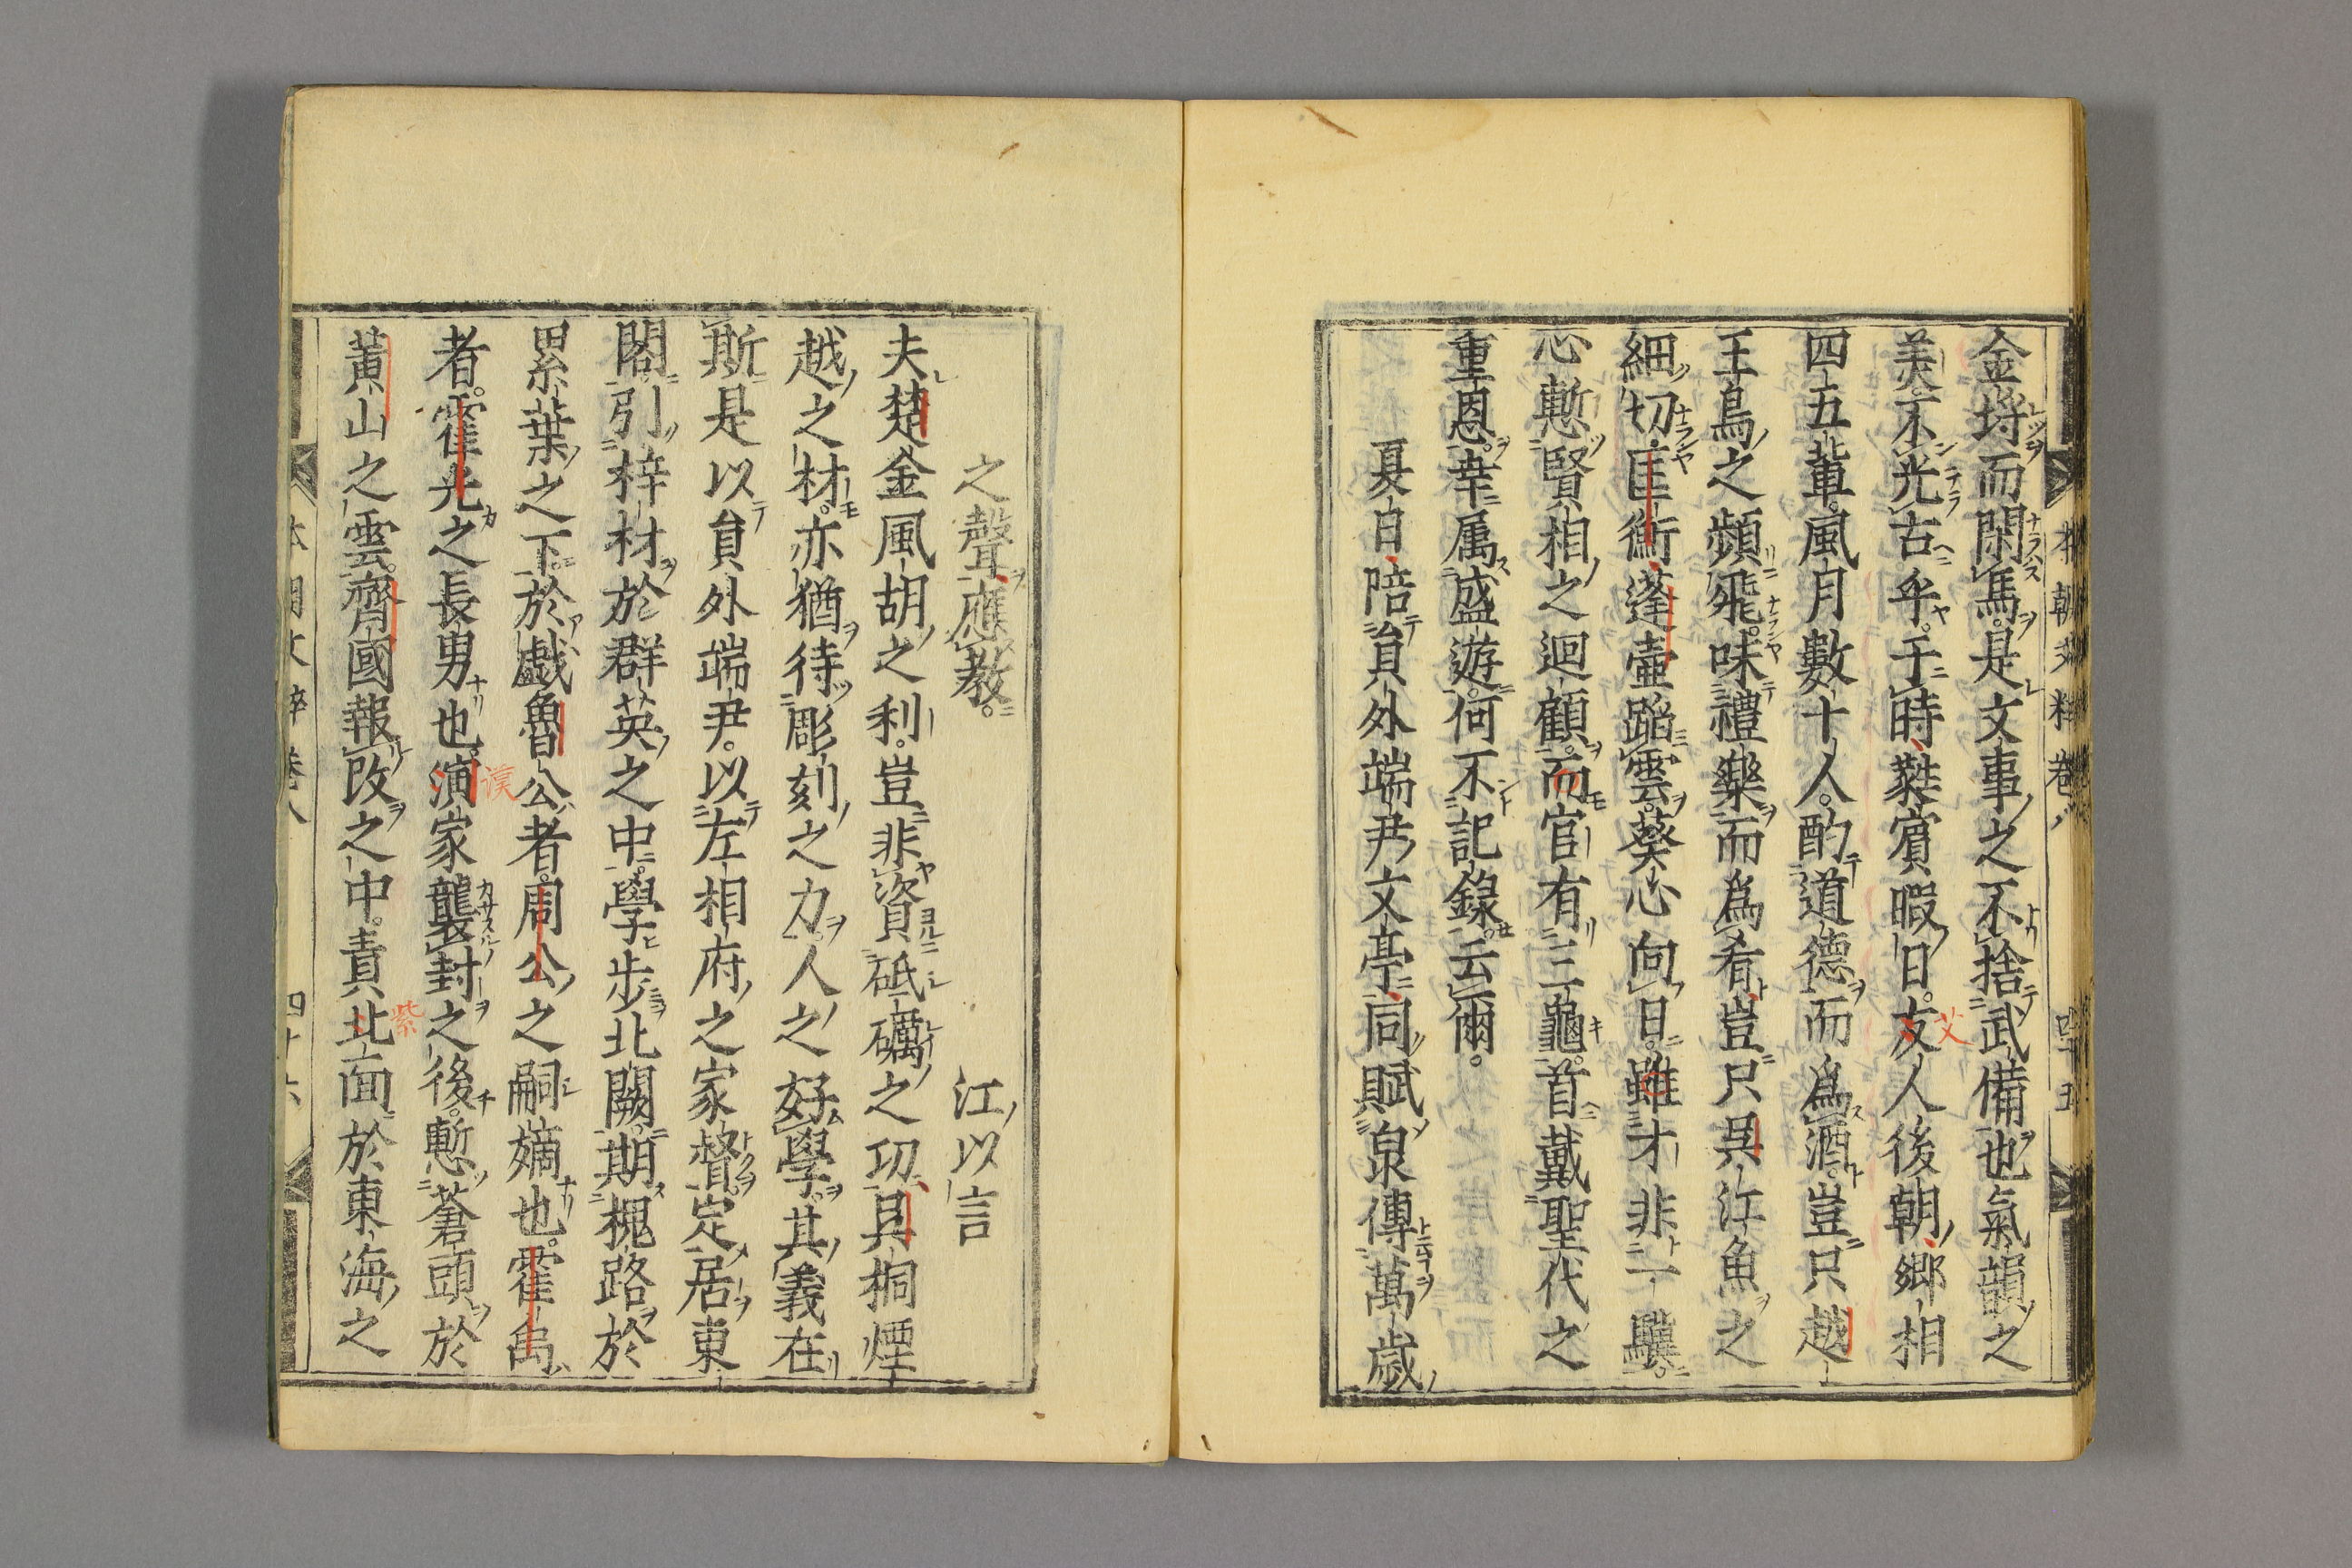 本朝文粹卷八 四十五
金埒而閑馬。是文事之不捨武備也氣韻之
美。不光古乎。于時蕤賓暇日。友人後朝。鄉相
艾
四五輩。風月數十人。酌道德而爲酒。豈只越
王鳥之頻飛。味禮樂而爲肴。豈只吳江魚之
細切。匡衡蓬壺蹈雲。葵心向日。雖才非一驥。
忝慙賢相之迴顧。而官有三龜。首戴聖代之
重恩。幸属盛遊。何不記錄。云爾。
夏日陪員外端尹文亭同賦泉傳萬歲
之聲應教。 江以言
夫楚金風胡之利。豈非資砥礪之功。吳桐煙
越之材。亦猶待彫刻之力。人之好學。其義在
斯是以員外端尹。以左相府之家督。定居東
閤。引梓材於群英之中。學步北闕。期槐路於
累葉之下。於戯魯公者。周公之嗣嫡也。霍禹
者。霍光之長男也。演家襲封之後。慙蒼頭於
漢
黃山之雲。齊國報改之中。責北面於東海之
紫
本朝文粹卷八 四十六